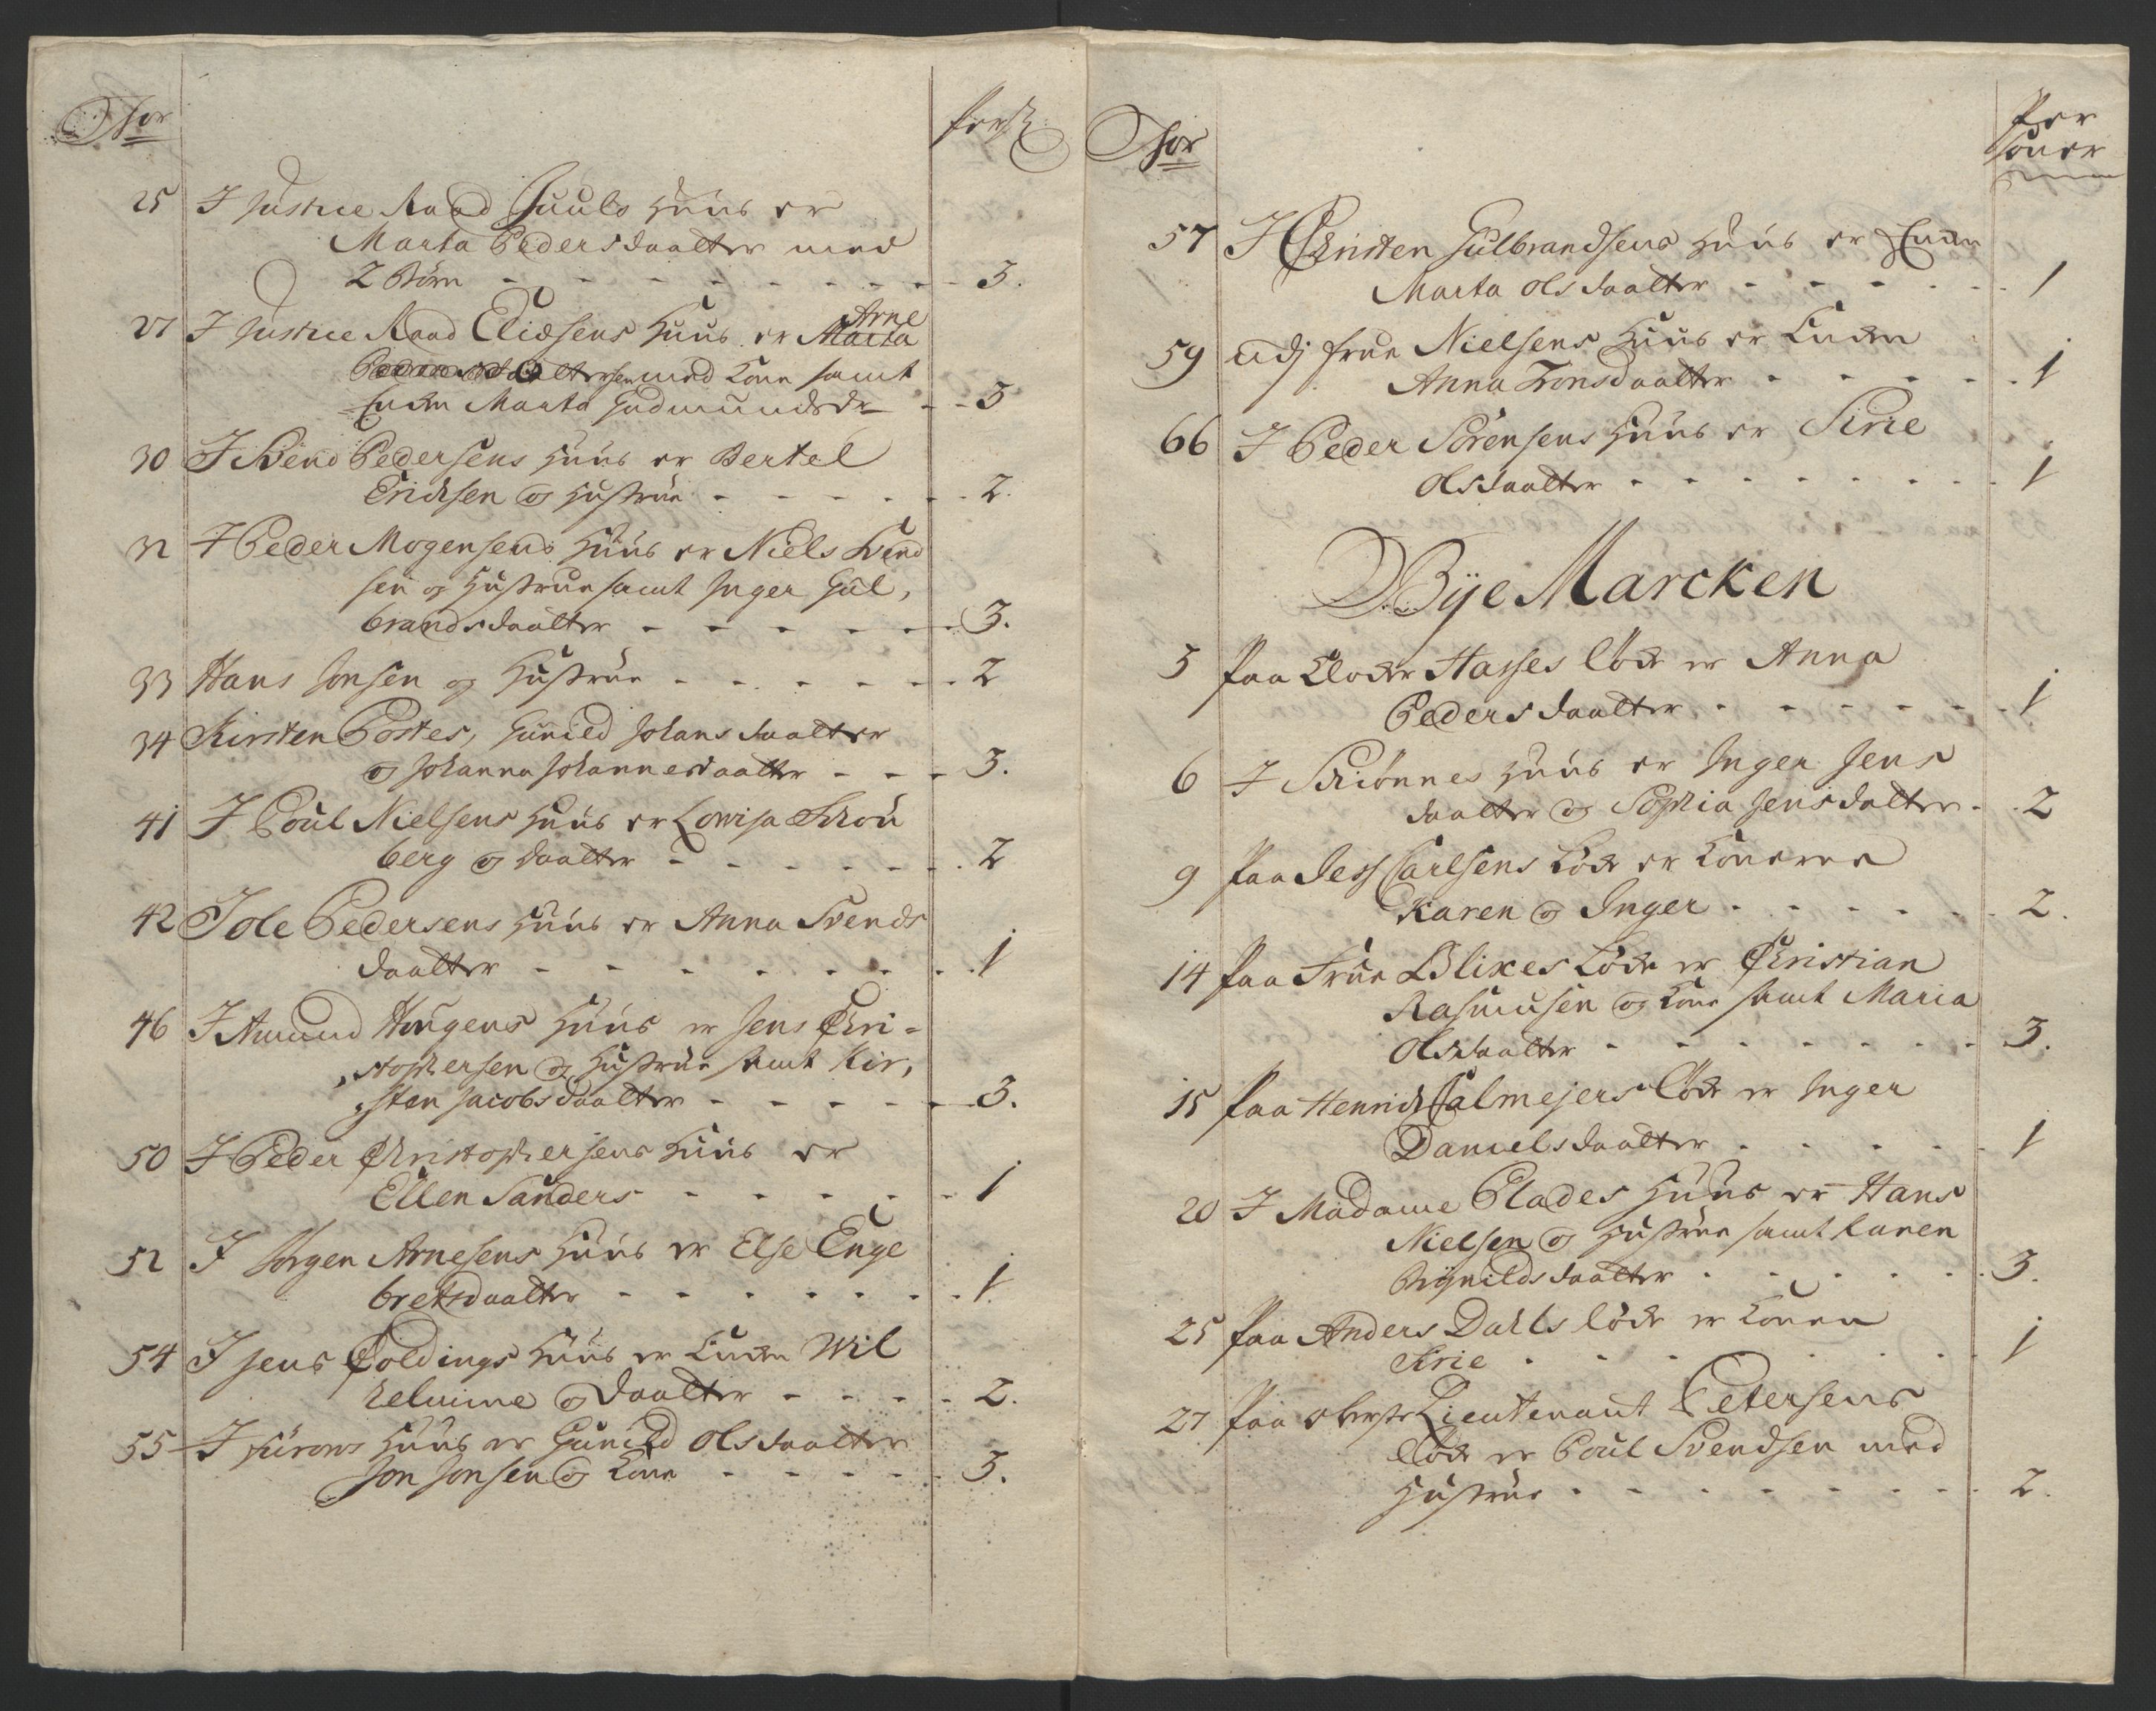 No
Pers
25 I Justice Raad Juuls Huus er
Marta Pedersdaatter med
2 Børn - - - - - - - - 3.
27 I Justice Raad Eliesens Huus er Marta Arne
Pedersdaatter sen med Kone samt
Enken Marta Gudmundsdr - - 3
30 I Svend Pedersens Huus er Bertel
Erichsen og Hustrue - - - - - 2.
32 I Peder Mogensens Huus er Niels Svend
sen og Hustrue samt Inger Gul,
brandsdaatter - - - - - - 3.
33 Hans Jonsen og Hustrue - - - - - - 2
34 Kirsten Postes, Gunild Johansdaatter
og Johanna Johannesdaatter - - - 3.
41 I Poul Nielsens Huus er Lowisa Schou
berg og daatter - - - - - - 2
42 I Ole Pedersens Huus er Anna Svends
daatter - - - - - - - 1
46 I Amund Hougens Huus er Jens Chri-
stophersen og Hustrue samt Kir,
sten Jacobsdaatter - - - - - 3.
50 I Peder Christophersens Huus er
Ellen Sanders - - - - - 1
52 I Jørgen Arnesens Huus er Else Enge
bretsdaatter - - - - - - - 1.
54 I Jens Coldings Huus er Enken Wil
helmine og daatter - - - - 2.
55 I Huus er Gunild Olsdaatter
Jon Jonsen og Kone - - - - - 3.
No
Per
soner
57 I Christen Gulbrandsens Huus er Enken
Marta Olsdaatter - - - - - 1
59 udj Frue Nielsens Huus er Enken
Anna Tronsdaatter - - - - - 1
66 I Peder Sørensens Huus er Sirie
Olsdaatter - - - - - - - - 1
Bye Marcken
5 Paa Eloder Hasses Løcke er Anna
Pedersdaatter - - - - - - 1
6 I Schiønnes Huus er Inger Jens
daatter og Sophia Jensdatter - 2
9 Paa Jess Carlsens Løcke er Konerne
Karen og Inger - - - - - - 2.
14 Paa Frue Blixes Løcke er Christian
Rasmusen og Kone samt Maria
Olsdaatter - - - - - - - 3.
15 Paa Henrich Calmejers Løcke er Inger
Danielsdaatter - - - - - 1
20 I Madame Plades Huus er Hans
Nielsen og Hustrue samt Karen
daatter - - - - - 3.
25 Paa Anders Dahls Løcke er Konen
Sirie - - - - - - - 1
27 Paa Oberste Lieutenant Petersens
Løcke er Poul Svendsen med
Hustrue - - - - - - - - 2.